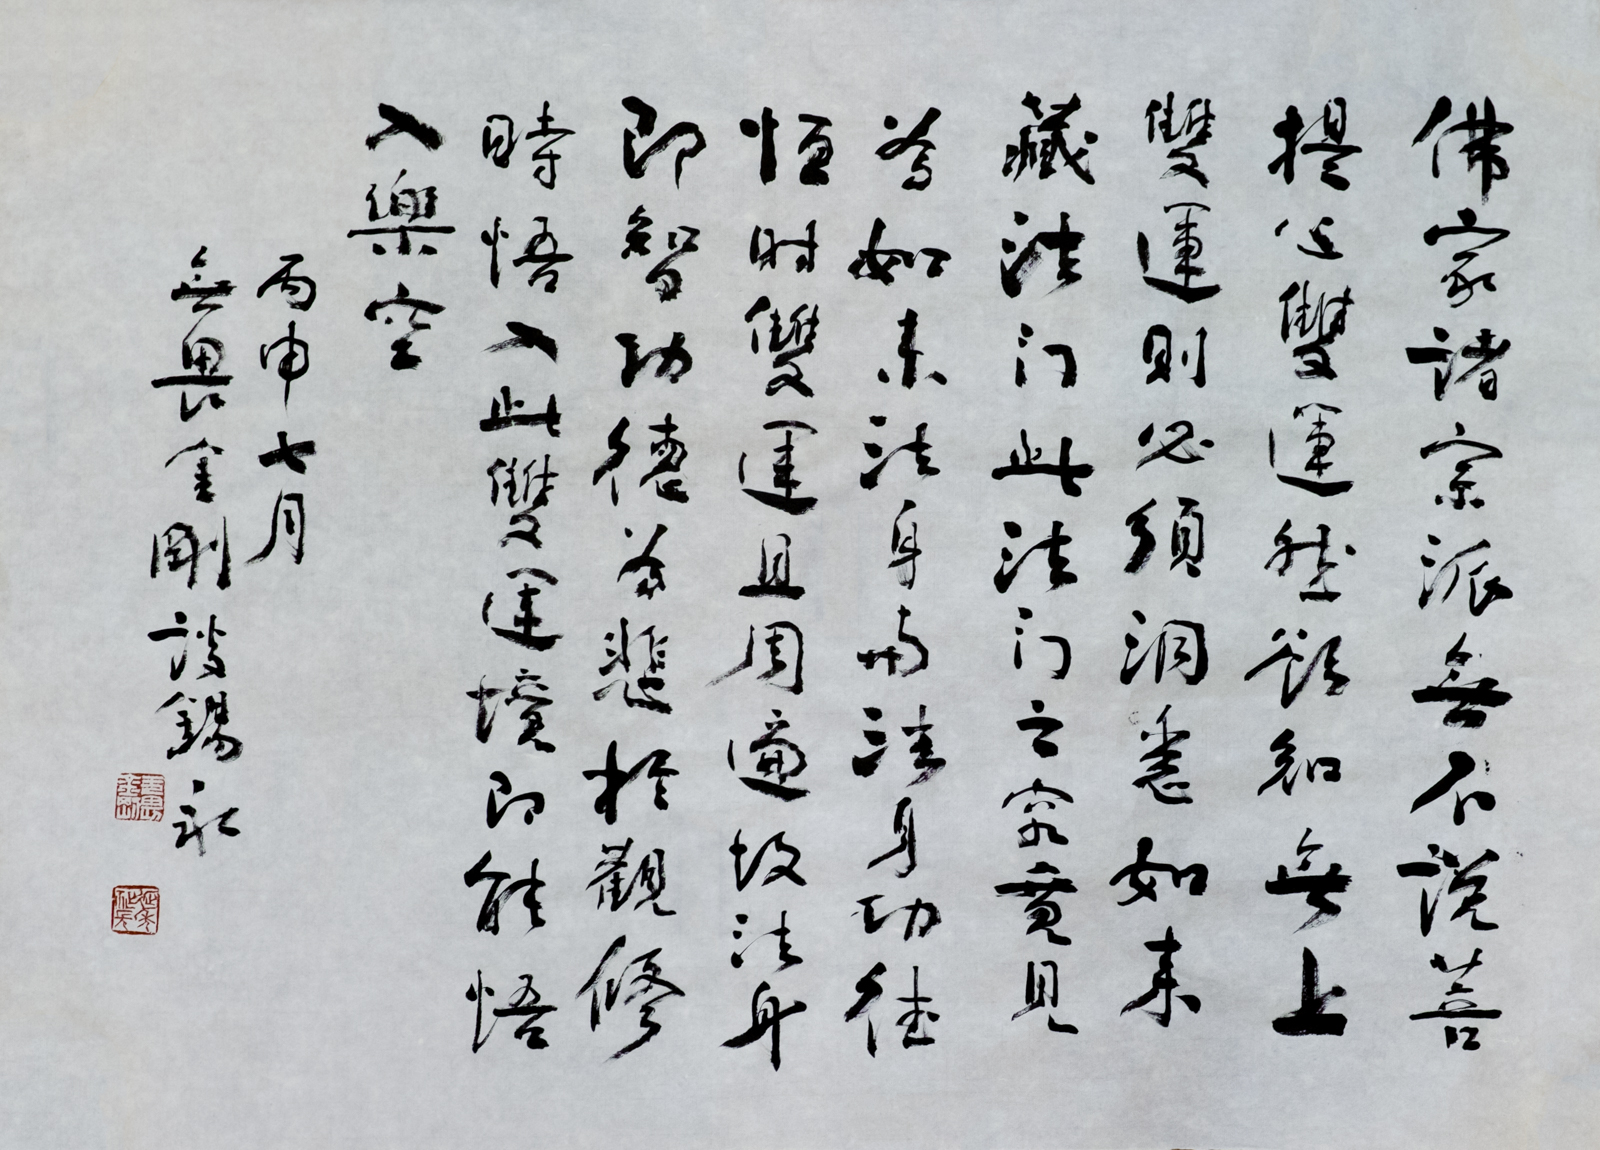 佛家諸宗派無不說菩
提心雙運然欲知無上
雙運則必須洞悉如來
藏法门此法门之究竟見
為如來法身與法身功德
恒时雙運且周遍故法身
即智功德為悲於觀修
時悟入此雙運境即能悟
入樂空
丙申七月
無畏金剛談錫永
無畏金剛